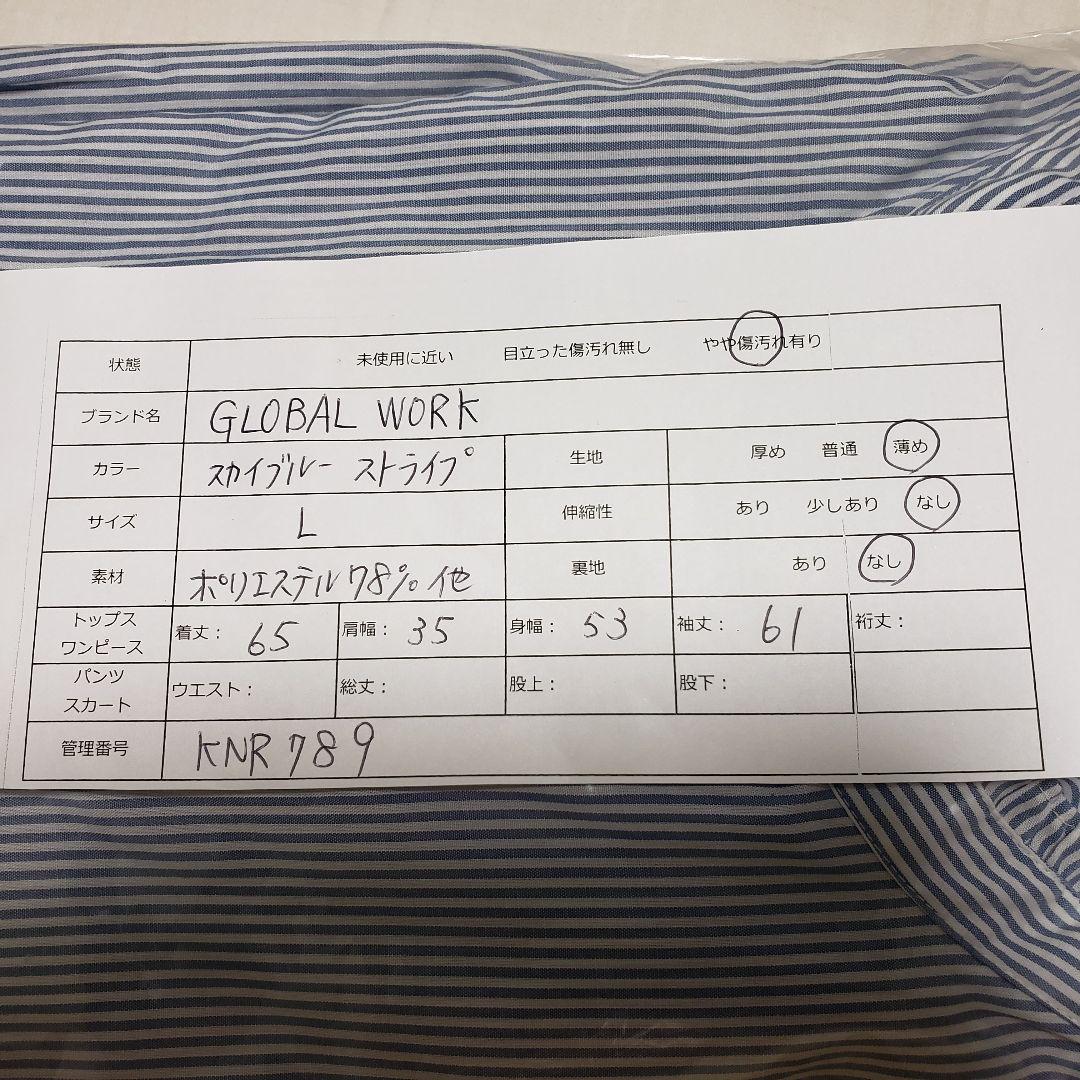 状態 未使用に近い 目立った傷汚れ無し やや傷汚れ有り
ブランド名 GLOBAL WORK
カラー スカイブルー ストライプ 生地 厚め 普通 薄め
サイズ L 伸縮性 あり 少しあり なし
素材 ポリエステル78%他 裏地 あり なし
トップス
ワンピース 着丈: 65 肩幅: 35 身幅: 53 袖丈: 61 裄丈:
パンツ
スカート ウエスト: 総丈: 股上: 股下:
管理番号 KNR789